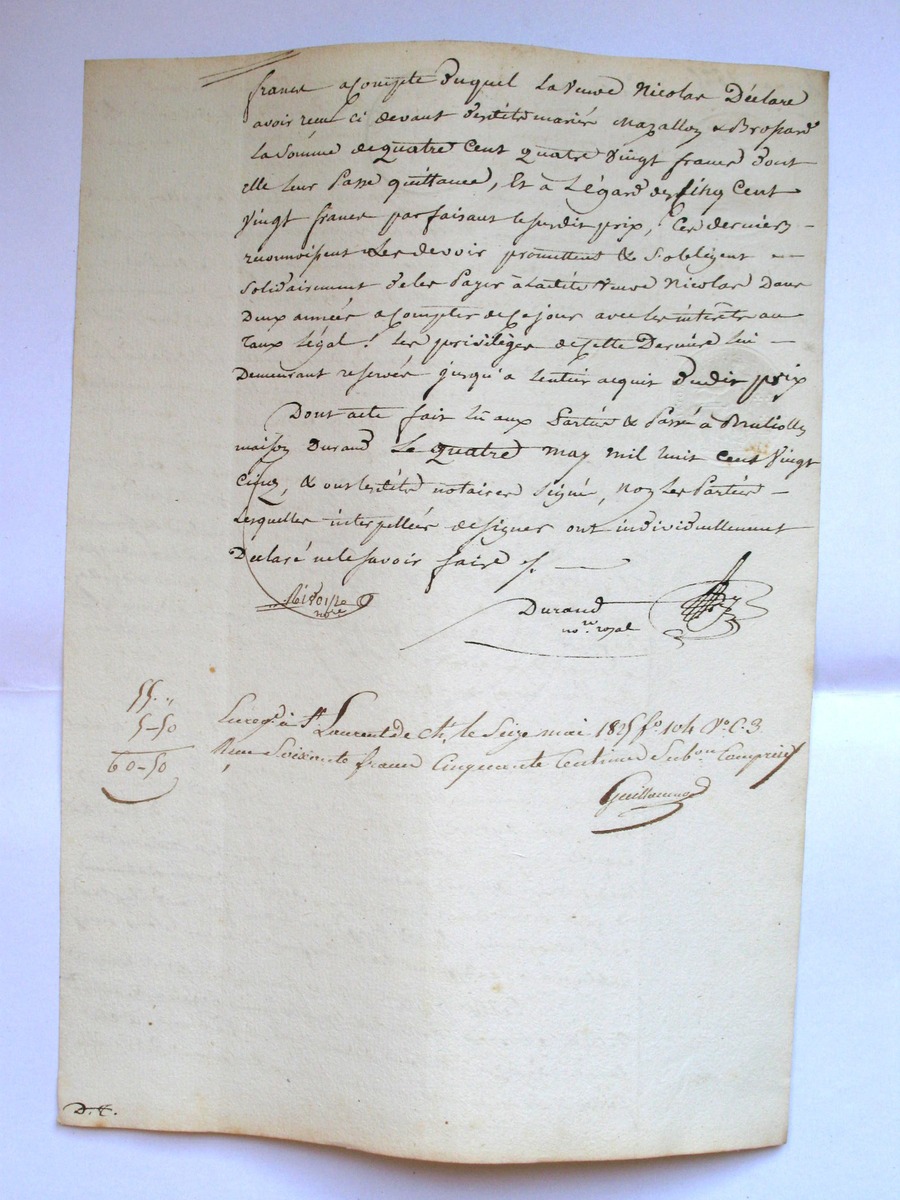 francs acompte duquel La Veuve Nicolas Déclare
avoir reçu ci devant desdits mariés Mazallon & Brossard
La Somme de quatre Cent quatre Vingt francs dont
elle leur Passe quittance, Et à L'égard des Cinq Cent
Vingt francs parfaisant le susdit prix, Ces derniers -
reconnoissent Les devoir promettent & S'obligent --
Solidairement de les Payer à Ladite Veuve Nicolas Dans
Deux années a compter de ce jour avec les intérêts au
Taux légal. Les privilèges de cette Dernière lui -
Demeurant reservés jusqu'a lentier acquit dudit prix
Dont acte fait lû aux Parties & Passé à
maison Durand Le quatre may mil huit cent Vingt
Cinq, & ont lesdits notaires Signé, non Les Parties -
Lesquelles interpellées de signer ont individuellement
Declaré ne le Savoir faire /. —
nore
Durand
nore. royal
55 . "
5-50
60-50
Enregé. à St. Laurent de Ch. le Seize mai 1825 fo. 104 Vo. C. 3
Reçu Soixante francs Cinquante Centimes Subon Comprise
D. T.